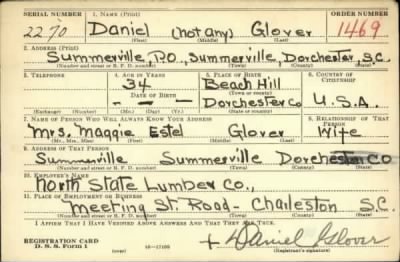 SERIAL NUMBER 1. NAME (Print) ORDER NUMBER
2270 Daniel (not any) Glover 1469
(First) (Middle) (Last)
2. ADDRESS (Print)
Summerville P.O., Summerville, Dorchester S.C.
(Number and street or R. F. D. number) (Town) (County) (State)
3. TELEPHONE 4. AGE IN YEARS 5. PLACE OF BIRTH 6. COUNTRY OF CITIZENSHIP
34 Beach Hill
DATE OF BIRTH (Town or county)
- - - Dorchester Co U.S.A.
(Exchange) (Number) (Mo.) (Day) (Yr.) (State or country)
7. NAME OF PERSON WHO WILL ALWAYS KNOW YOUR ADDRESS 8. RELATIONSHIP OF THAT PERSON
Mrs. Maggie Estel Glover Wife
(Mr., Mrs., Miss) (First) (Middle) (Last)
9. ADDRESS OF THAT PERSON
Summerville Summerville Dorchester Co
(Number and street or R. F. D. number) (Town) (County) (State)
10. EMPLOYER'S NAME
North State Lumber Co.,
11. PLACE OF EMPLOYMENT OR BUSINESS
Meeting St. Road - Chaleston S.C.
(Number and street or R. F. D. number) (Town) (County) (State)
I AFFIRM THAT I HAVE VERIFIED ABOVE ANSWERS AND THAT THEY ARE TRUE.
REGISTRATION CARD
D. S. S. Form 1 (over) 16-17105 + Daniel Glover
(Registrant's signature)